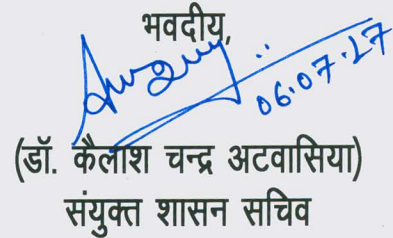 भवदीय,
06.07.17
(डॉ. कैलाश चन्द्र अटवासिया)
संयुक्त शासन सचिव